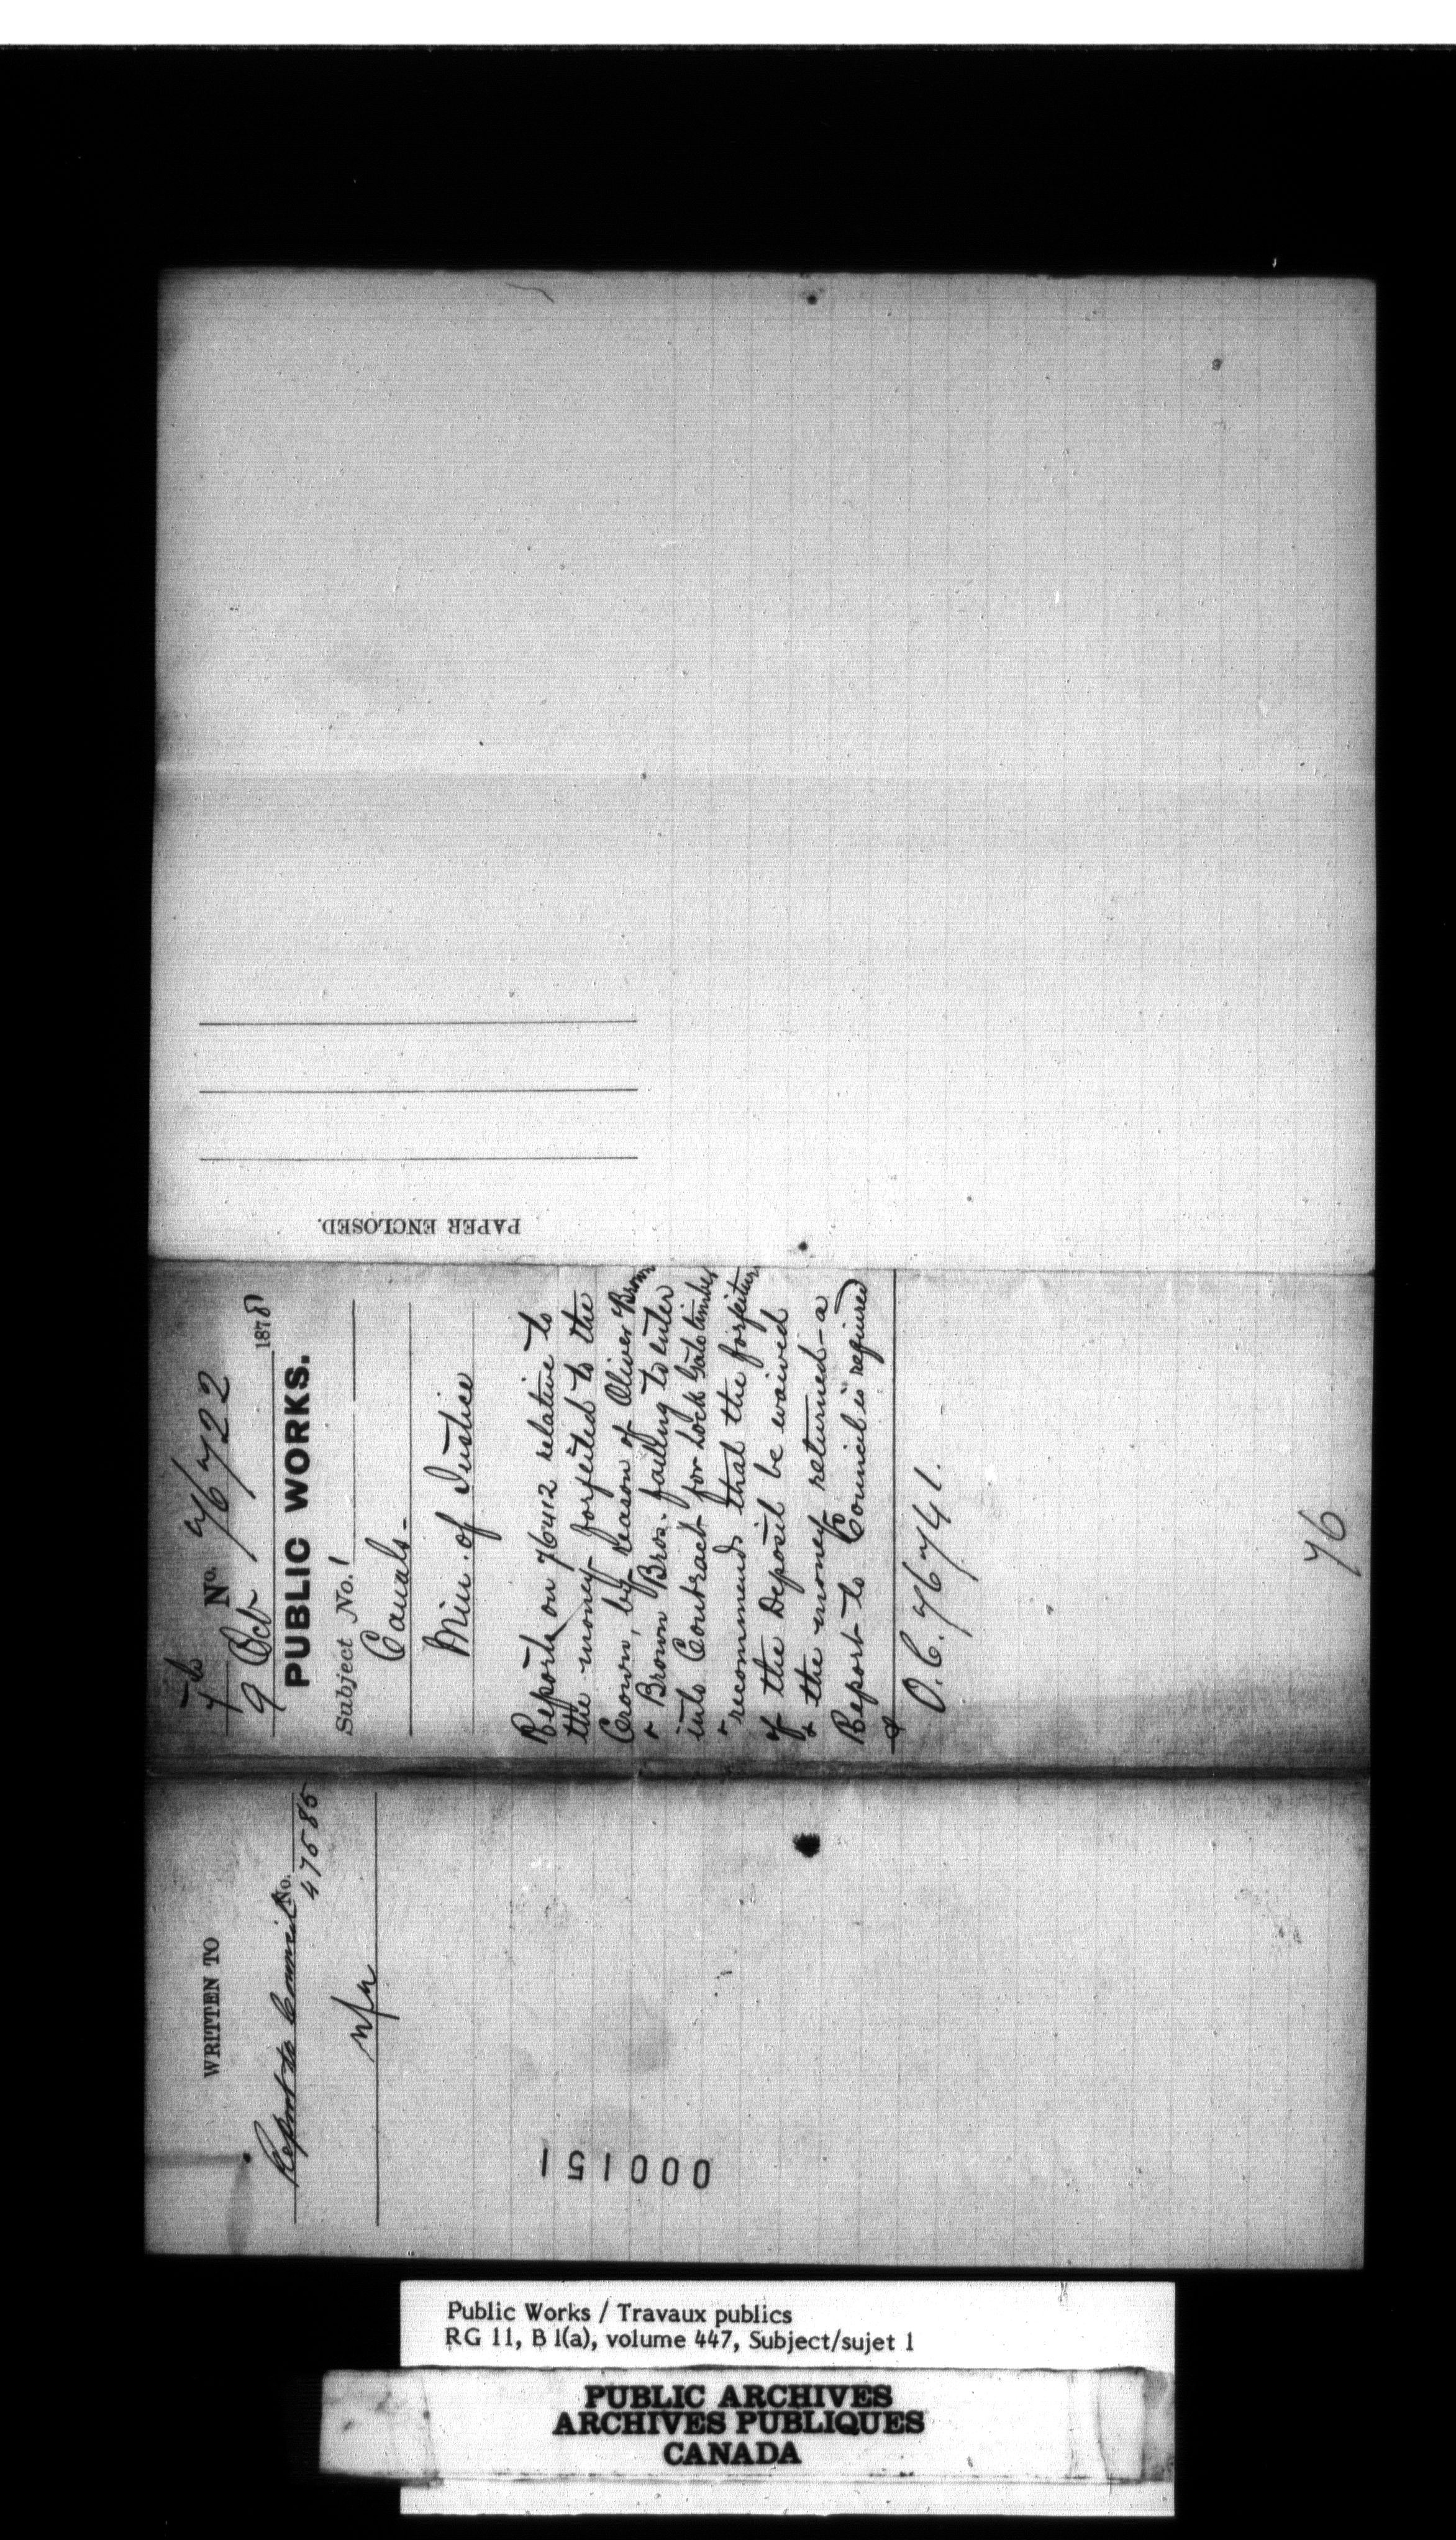 No. 76722
9 Oct 1878
PUBLIC WORKS.
Subject No. 1
Canals -
Min. of Justice
Reports on 76412 relative to
the money forfeited to the
Crown, by reason of Oliver Brown
& Brown Bros. failing to enter
into Contract for Lock Gate timber
& recommends that the forfeiture
of the Deposit be waived
& the money returned - a
Report to Council is required
O.C. 76741.
76
PAPER ENCLOSED.
WRITTEN TO
Report to Council No.
47585
000151
Public Works / Travaux publics
RG 11, B 1(a), volume 447, Subject/sujet 1
PUBLIC ARCHIVES
ARCHIVES PUBLIQUES
CANADA